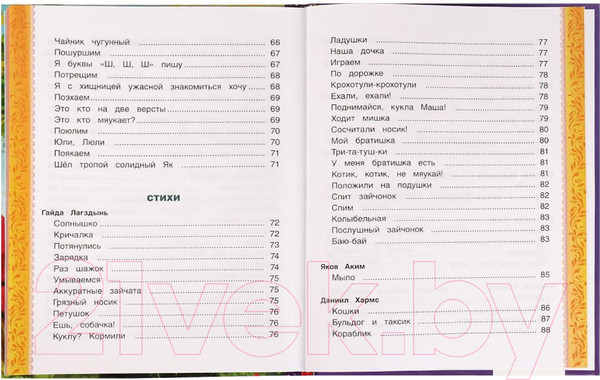 Чайник чугунный 66
Пошуршим 67
Я буквы «Ш, Ш, Ш» пишу 67
Потрещим 68
Я с хищницей ужасной знакомиться хочу 68
Поэхаем 69
Это кто на две версты 69
Это кто мяукает? 69
Поюлим 70
Юли, Люли 70
Поякаем 71
Шёл тропой солидный Як 71
СТИХИ
Гайда Лагздынь
Солнышко 72
Кричалка 72
Потянулись 73
Зарядка 74
Раз шажок 74
Умываемся 75
Аккуратные зайчата 75
Грязный носик 75
Петушок 76
Ешь, собачка! 76
Куклу? Кормили 76
Ладушки 77
Наша дочка 77
Играем 77
По дорожке 78
Крохотули-крохотули 78
Ехали, ехали! 78
Поднимайся, кукла Маша! 79
Ходит мишка 79
Сосчитали носик! 80
Мой братишка 80
Три-та-туш-ки 81
У меня братишка есть 81
Котик, котик, не мяукай! 81
Положили на подушки 82
Спит зайчонок 82
Спим 82
Колыбельная 83
Послушный зайчонок 83
Баю-бай 83
Яков Аким
Мыло 85
Даниил Хармс
Кошки 86
Бульдог и таксик 87
Кораблик 88
21vek.by